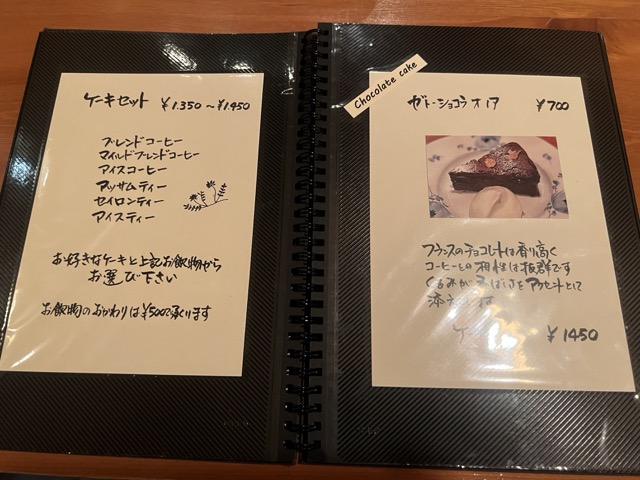 ケーキセット ¥1.350～¥1.450
ブレンドコーヒー
マイルドブレンドコーヒー
アイスコーヒー
アッサムティー
セイロンティー
アイスティー
お好きなケーキと上記お飲物から
お選び下さい
お飲物のおかわりは¥500で承ります
Chocolate cake
ガトーショコラ オ ノア ¥700
フランスのチョコレートは香り高く
コーヒーとの相性は抜群です
くるみが
アクセントとして
¥1450